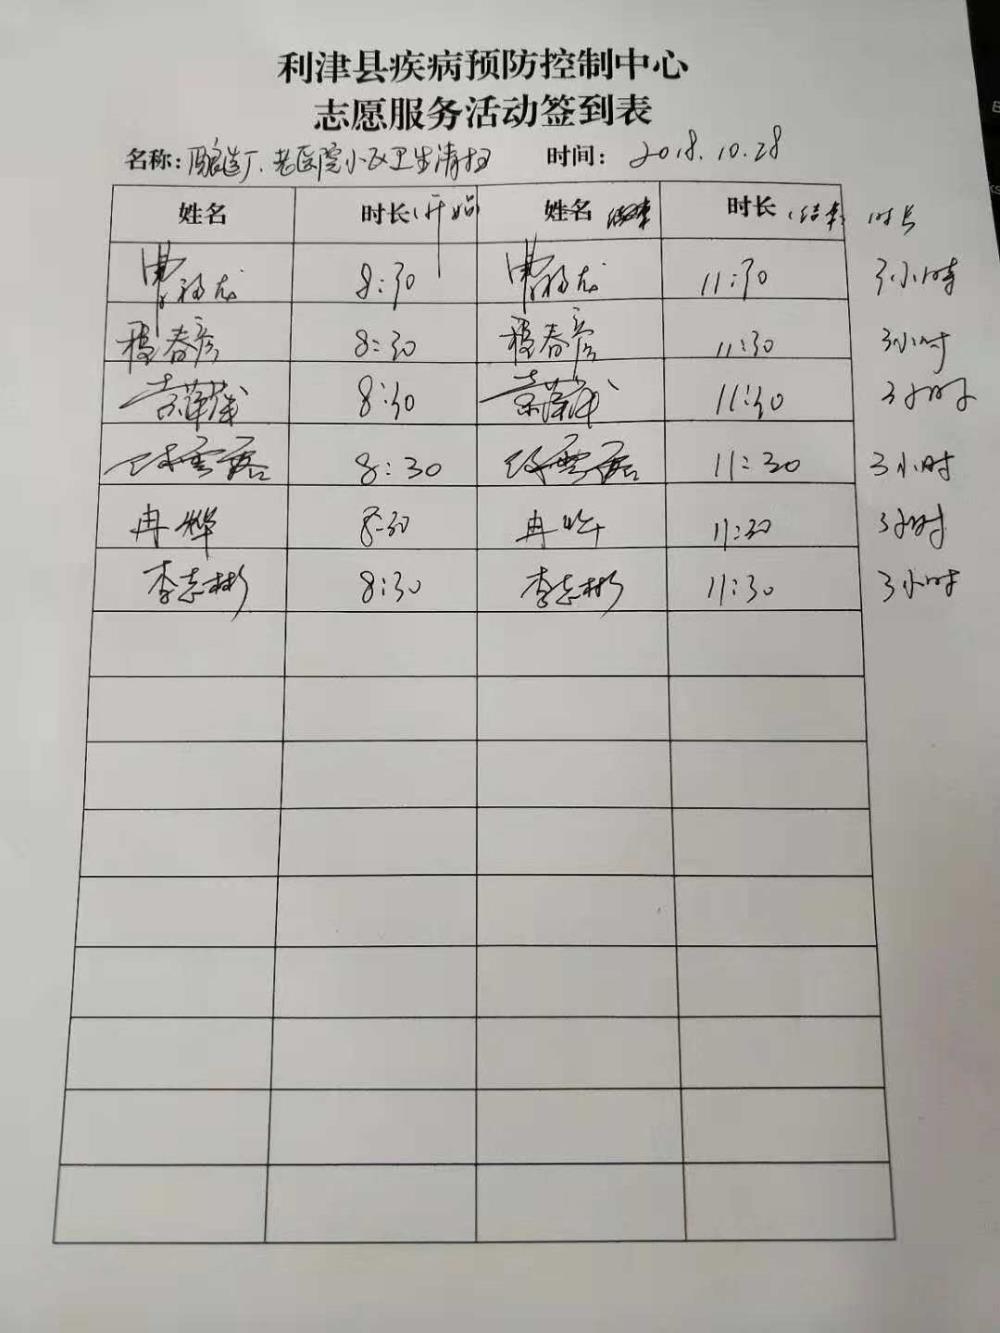 利津县疾病预防控制中心
志愿服务活动签到表
名称：酿造厂、老医院小区卫生清扫 时间：2018.10.28
姓名 时长（开始 姓名 时长（结束） 时长
8:30 11:30 3小时
程春彦 8:30 程春彦 11:30 3小时
8:30 11:30 3小时
8:30 11:30 3小时
冉烨 8:30 冉烨 11:30 3小时
李志彬 8:30 李志彬 11:30 3小时